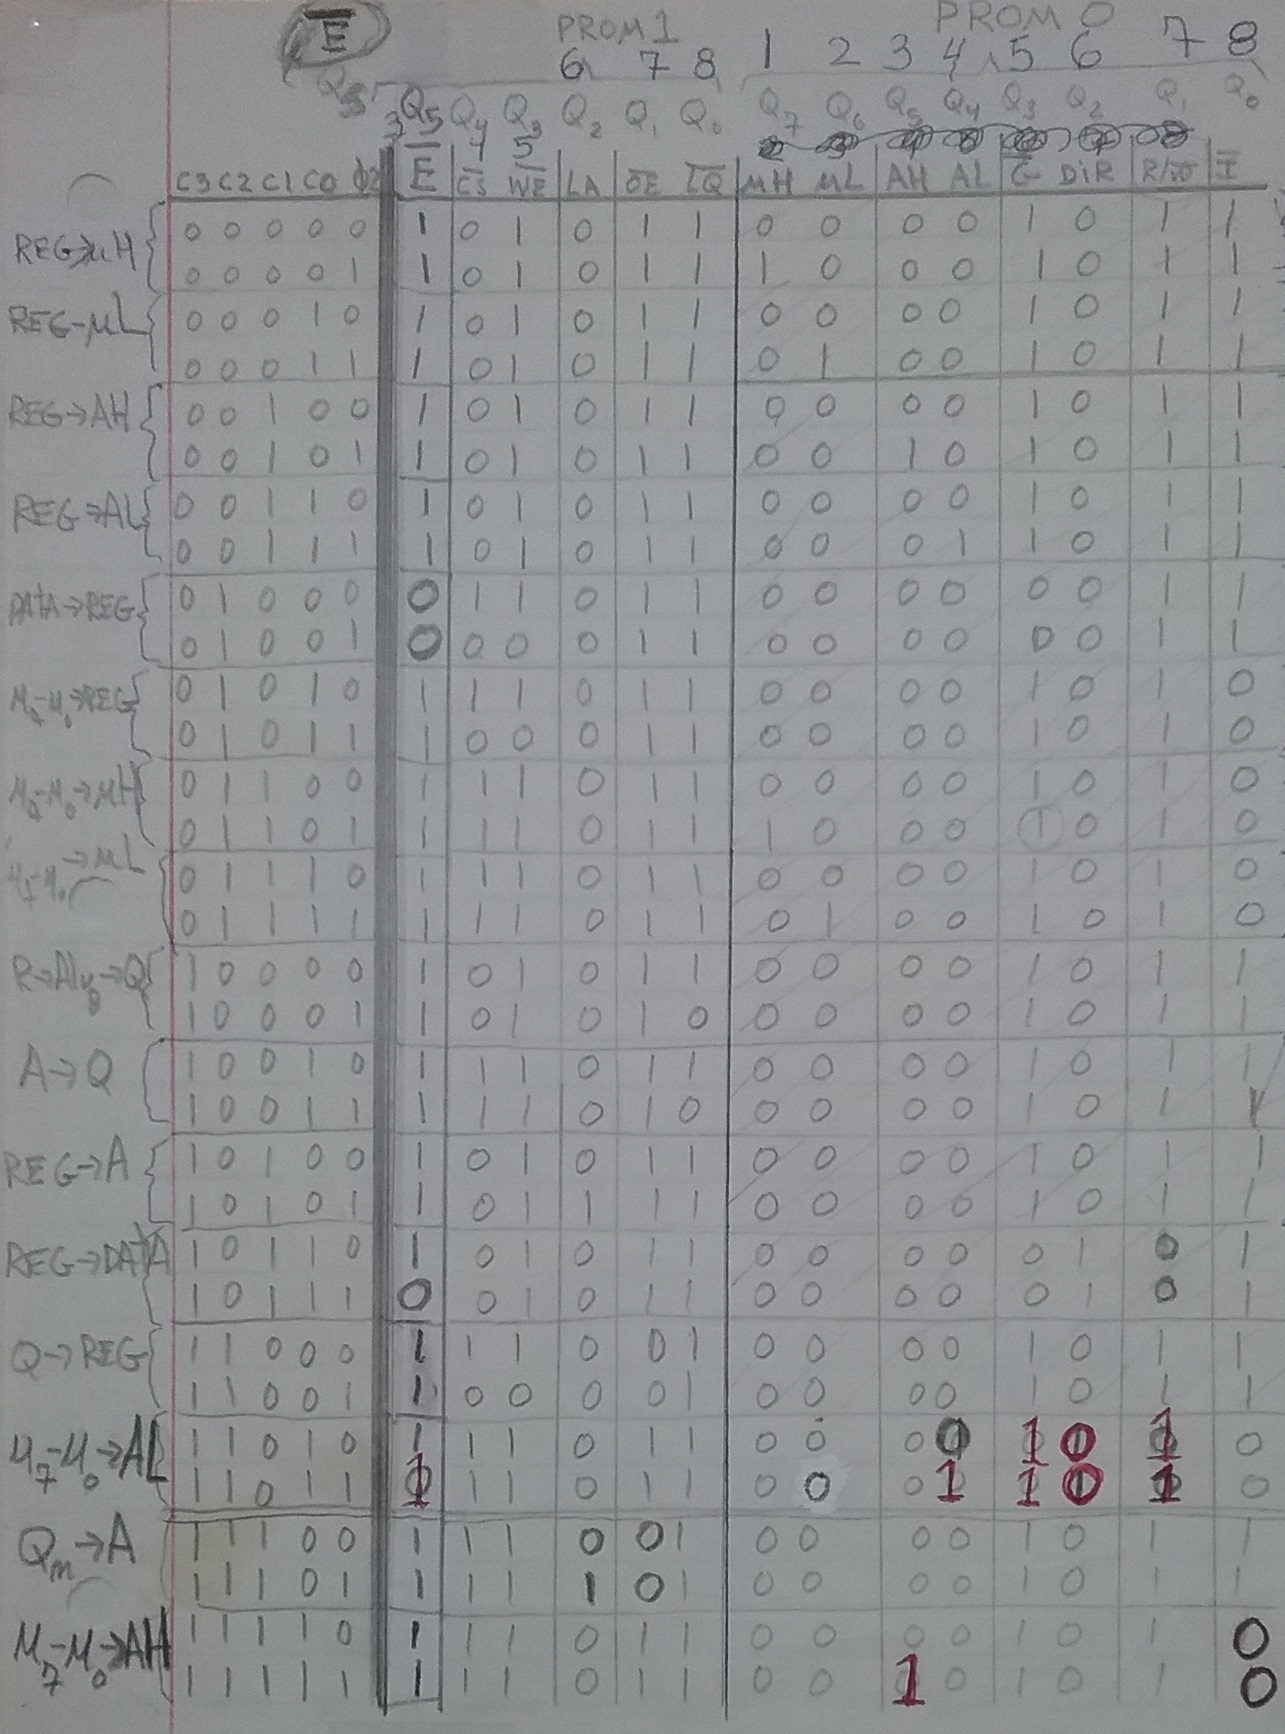 E̅
PROM 1 PROM 0
6 7 8 1 2 3 4 5 6 7 8
Q5 Q4 Q3 Q2 Q1 Q0 Q7 Q6 Q5 Q4 Q3 Q2 Q1 Q0
3 4 5
C3 C2 C1 C0 Φ2 E̅ C̅S̅ W̅E̅ LA O̅E̅ L̅Q̅ μH μL AH AL G̅ DiR R/W̅ I̅
REG→μH 0 0 0 0 0 1 0 1 0 1 1 0 0 0 0 1 0 1 1
0 0 0 0 1 1 0 1 0 1 1 1 0 0 0 1 0 1 1
REG-μL 0 0 0 1 0 1 0 1 0 1 1 0 0 0 0 1 0 1 1
0 0 0 1 1 1 0 1 0 1 1 0 1 0 0 1 0 1 1
REG→AH 0 0 1 0 0 1 0 1 0 1 1 0 0 0 0 1 0 1 1
0 0 1 0 1 1 0 1 0 1 1 0 0 1 0 1 0 1 1
REG→AL 0 0 1 1 0 1 0 1 0 1 1 0 0 0 0 1 0 1 1
0 0 1 1 1 1 0 1 0 1 1 0 0 0 1 1 0 1 1
DATA→REG 0 1 0 0 0 0 1 1 0 1 1 0 0 0 0 0 0 1 1
0 1 0 0 1 0 0 0 0 1 1 0 0 0 0 0 0 1 1
M7-M0→REG 0 1 0 1 0 1 1 1 0 1 1 0 0 0 0 1 0 1 0
0 1 0 1 1 1 0 0 0 1 1 0 0 0 0 1 0 1 0
M7-M0→μH 0 1 1 0 0 1 1 1 0 1 1 0 0 0 0 1 0 1 0
0 1 1 0 1 1 1 1 0 1 1 1 0 0 0 1 0 1 0
M7-M0→μL 0 1 1 1 0 1 1 1 0 1 1 0 0 0 0 1 0 1 0
0 1 1 1 1 1 1 1 0 1 1 0 1 0 0 1 0 1 0
1 0 0 0 0 1 0 1 0 1 1 0 0 0 0 1 0 1 1
1 0 0 0 1 1 0 1 0 1 0 0 0 0 0 1 0 1 1
A→Q 1 0 0 1 0 1 1 1 0 1 1 0 0 0 0 1 0 1 1
1 0 0 1 1 1 1 1 0 1 0 0 0 0 0 1 0 1 1
REG→A 1 0 1 0 0 1 0 1 0 1 1 0 0 0 0 1 0 1 1
1 0 1 0 1 1 0 1 1 1 1 0 0 0 0 1 0 1 1
REG→DATA 1 0 1 1 0 1 0 1 0 1 1 0 0 0 0 0 1 0 1
1 0 1 1 1 0 0 1 0 1 1 0 0 0 0 0 1 0 1
Q→REG 1 1 0 0 0 1 1 1 0 0 1 0 0 0 0 1 0 1 1
1 1 0 0 1 1 0 0 0 0 1 0 0 0 0 1 0 1 1
M7-M0→AL 1 1 0 1 0 1 1 1 0 1 1 0 0 0 0 1 0 1 0
1 1 0 1 1 1 1 1 0 1 1 0 0 0 1 1 0 1 0
Qm→A 1 1 1 0 0 1 1 1 0 0 1 0 0 0 0 1 0 1 1
1 1 1 0 1 1 1 1 1 0 1 0 0 0 0 1 0 1 1
M7-M0→AH 1 1 1 1 0 1 1 1 0 1 1 0 0 0 0 1 0 1 0
1 1 1 1 1 1 1 1 0 1 1 0 0 1 0 1 0 1 0